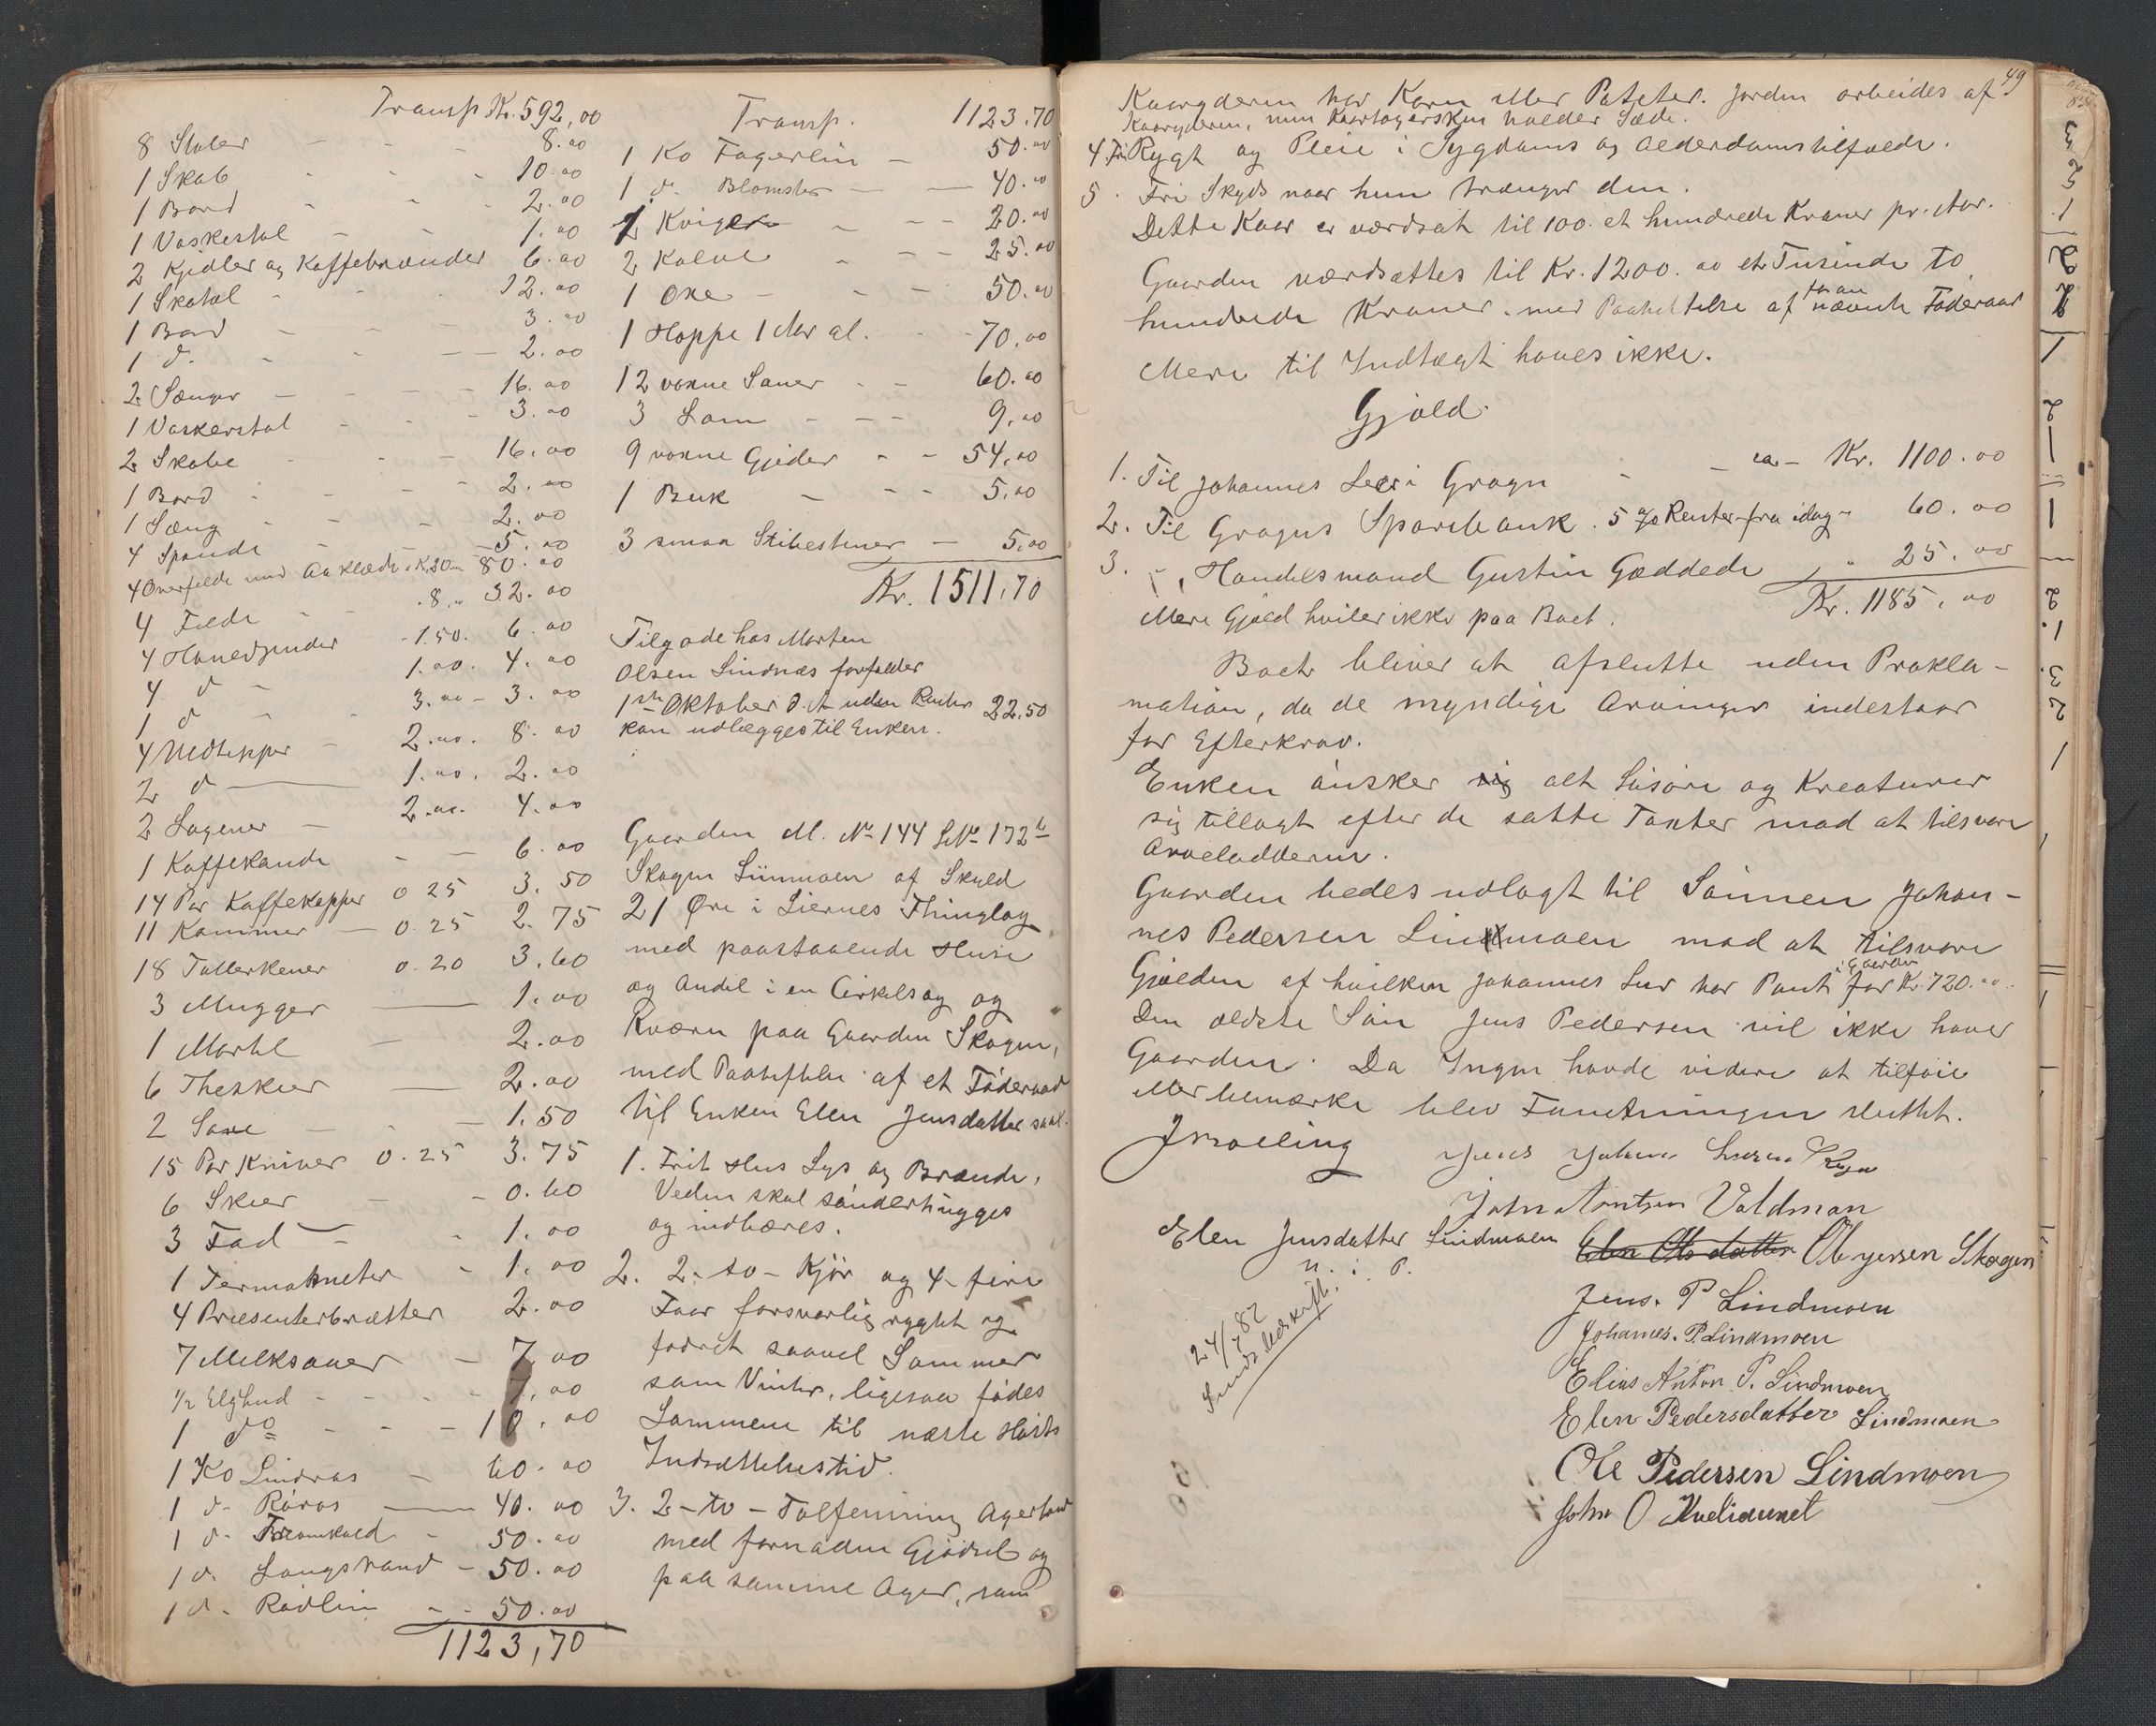 Transp. Kr. 592,00
8 Stoler - - - 8.00
1 Skab - - - 10.00
1 Bord - - - 2.00
1 Vaskestol - - 1.00
2 Kjedler og Kaffebrænder 6.00
1 Skatol - - 12.00
1 Bord - - 3.00
1 d. - - - 2.00
2 Sænger - - - 16.00
1 Vaskerstol - - - 3.00
2 Skabe - - - 16.00
1 Bord - - - 2.00
1 Sæng - - - 2.00
4 Spande - - - 5.00
4 Overfelde med Aaklæde a Kr. 20.00 80.00
4 Felde - - 8.00 32.00
4 Hovedpuder 1.50. 6.00
4 d - 1.00. 4.00
1 d - 3.00 - 3.00
4 Uldtepper - 2.00. 8.00
2 d - 1.00. 2.00
2 Lagener - 2.00. 4.00
1 Kaffekande - - 6.00
14 Par Kaffekopper 0.25 3.50
11 Kommer - 0.25 2.75
18 Tallerkener 0.20 3.60
3 Mugger - 1.00
1 Mortel - 2.00
6 Theskeer - 2.00
2 Saxe - - 1.50
15 Par Kniver 0.25 3.75
6 Skeer - - 0.60
3 Fad - - 1.00
1 Termometer - 1.00
4 Præsenterbrætter 2.00
7 Melksaaer - 7.00
1/2 Elghud - - - 7.00
1 do - - - 10.00
1 Ko Lindros - 60.00
1 d. Røros - 40.00
1 d. Brandkold - 50.00
1 d. Langstrand - 50.00
1 d. Rødlin - - 50.00
1123,70
Transp. 1123.70
1 Ko Fagerlin - 50.00
1 d. Blomster - - 40.00
1 Kvige - - - 20.00
2 Kalve - - - 25.00
1 Oxe - - - 50.00
1 Hoppe 1 Aar gl. - - 70.00
12 voxne Sauer - - 60.00
3 Lam - - - 9.00
9 voxne Gjeder - - 54.00
1 Buk - - - 5.00
3 smaa Slibestener - 5.00
Kr. 1511.70
Tilgode hos Morten
Olsen Lindnæs forfalder
1ste Oktober d. A. uden Renter 22.50
kan udlægges til Enken.
Gaarden M. No 144 L No 172b
Skogen Linmoen af Skyld
21 Øre i Liernes Thinglag
med paastaaende Huse
og Andel i en Cirkelsag og
Kværn paa Gaarden Skogen,
med Paaheftelse af et Føderaad
til Enken Elen Jensdatter saal.
1. Frit Hus Lys og Brænde,
Veden skal sønderhugges
og indbæres.
2. 2 - to - Kjør og 4 - fire
Faar forsvarlig rygtet og
fodret saavel Sommer
som Vinter, ligesaa fødes
Lammene til næste Høsts
Indsættelsestid.
3. 2 - to - Tolfterinnig Agerland
med fornøden Gjødsel og
paa samme Ager, som
49
Kaaryderen har Korn eller Poteter. Jorden arbeides af
Kaaryderen, men Kaartagersken holder Sæde.
4. Fri Rygt og Pleie i Sygdoms og Alderdomstilfælde.
5. Fri Skyds naar hun trænger den.
Dette Kaar er værdsat til 100. et hundrede Kroner pr. Aar.
Gaarden værdsættes til Kr. 1200.00 et Tusinde to
hundrede Kroner. med Paaheftelse af foran nævnte Føderaad
Mere til Indtægt haves ikke.
Gjæld.
1. Til Johannes Leer i Grogn - - ca - Kr. 1100.00
2. Til Grogns Sparebank. 5 % Renter fra idag " 60.00
3. " Handelsmand Gustin Gæddede " " 25.00
Kr. 1185.00
Mere Gjæld hviler ikke paa Boet.
Boet bliver at afslutte uden Prokla-
mation, da de myndige Arvinger indestaar
for Efterkrav.
Enken ønsker sig alt Løsøre og Kreaturer
sig tillagt efter de satte Taxter mod at tilsvare
Arvelodderne.
Gaarden bedes udlagt til Sønnen Johan-
nes Pedersen Linmoen mod at tilsvare
Gjælden af hvilken Johannes Leer har Pant i Gaarden for Kr. 720.00.
Den ældste Søn Jens Pedersen vil ikke have
Gaarden. Da Ingen havde videre at tilføie
eller bemærke blev Forretningen sluttet.
Jens Johan
John Arntzen Valdman
Elen Jensdatter Lindmoen
Elen Olsdatter Ole Jensen Skogen
Jens. P Lindmoen
Johannes. P. Lindmoen
Elias Anton P. Lindmoen
Elen Pedersdatter Lindmoen
Ole Pedersen Lindmoen
John O Kvelidunet
24/7 82